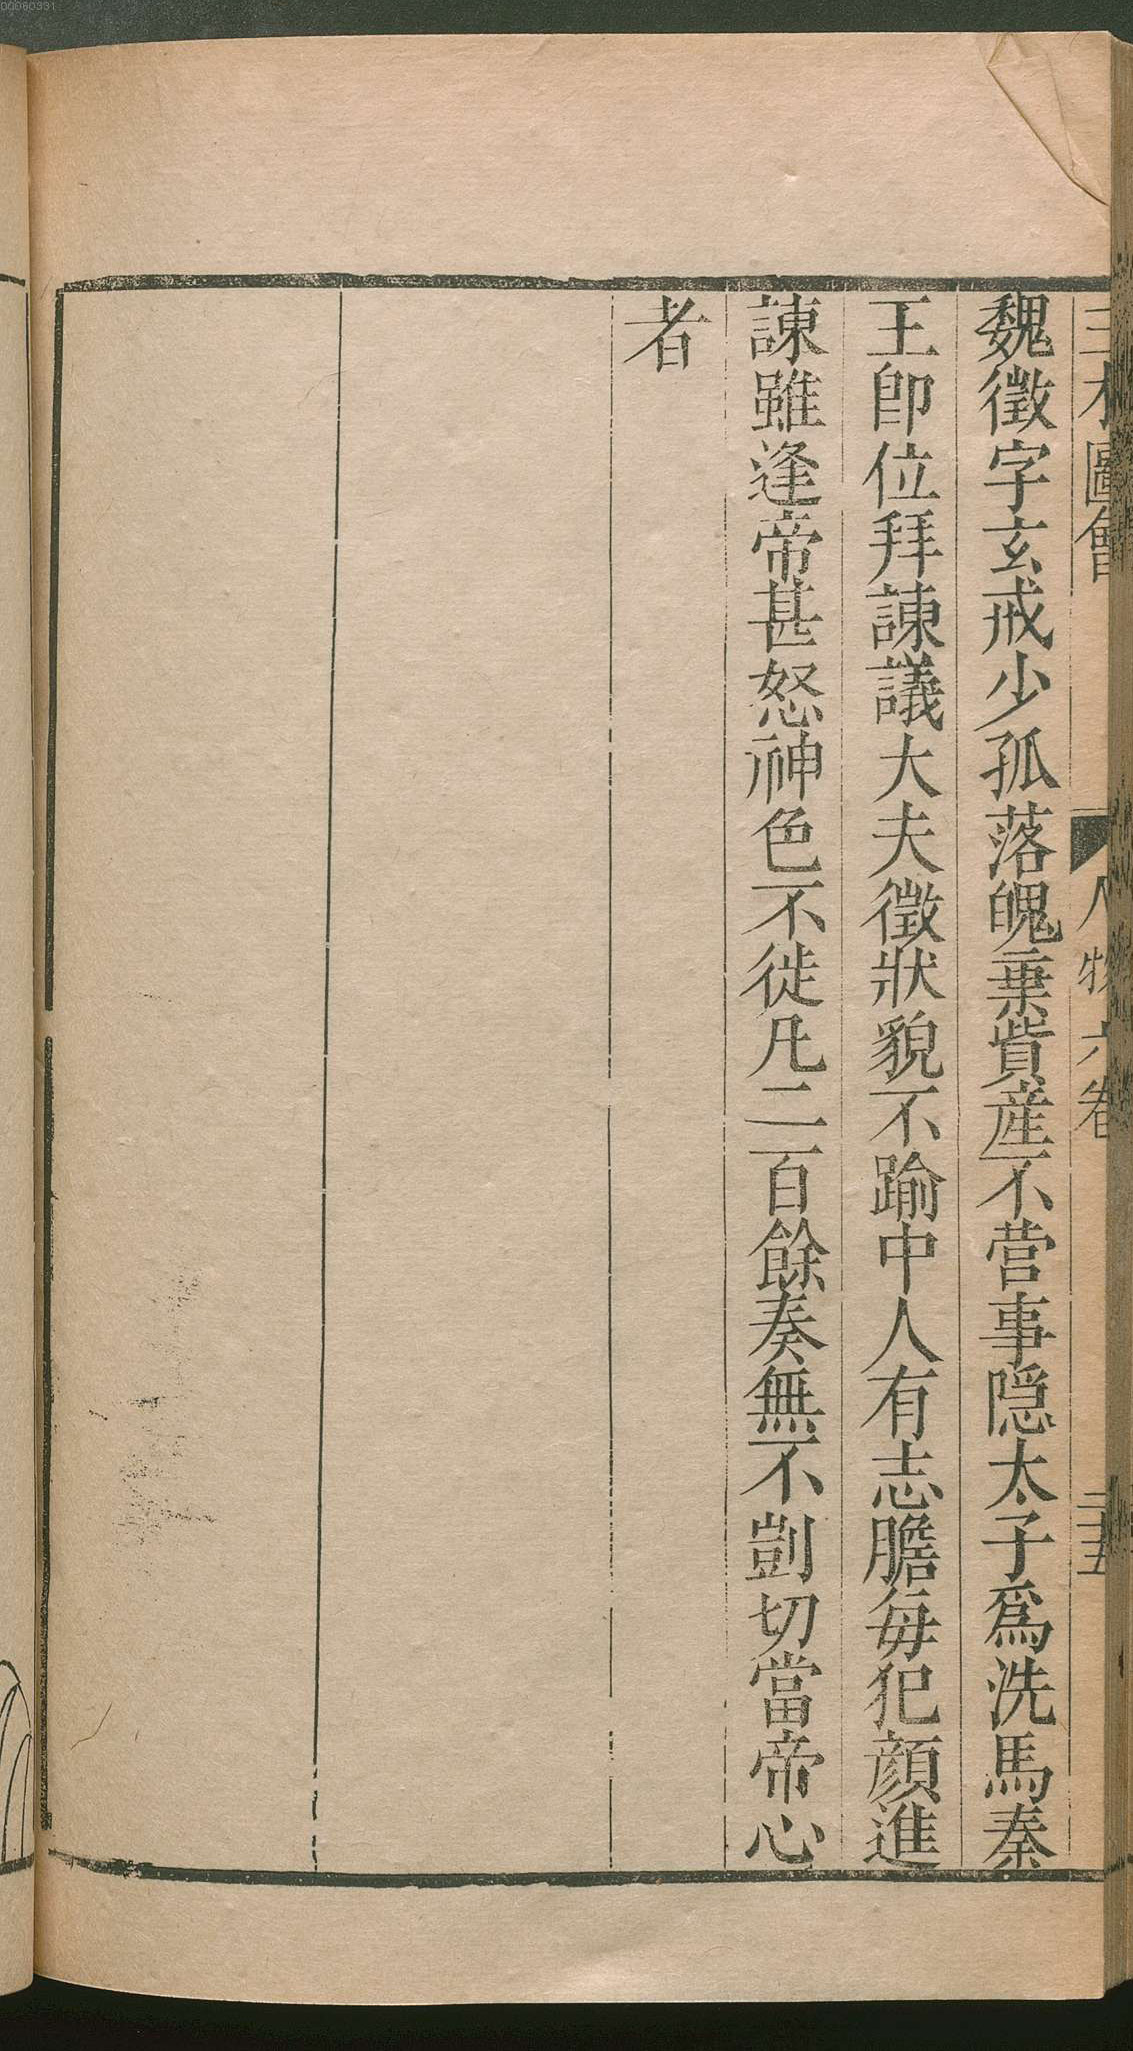 00060331
三才圖會
人物六卷
二十五
魏徵字玄成少孤落魄棄貲産不营事隠太子爲洗馬秦
王卽位拜諫議大夫徵狀貌不踰中人有志膽每犯顔進
諫雖逢帝甚怒神色不徙凡二百餘奏無不剴切當帝心
者